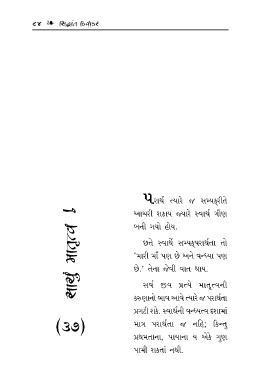 ૮૪ ❧ સિદ્ધાંત દિવાકર
સાચું માતૃત્વ !
(૩૭)
પરાર્થ ત્યારે જ સમ્યક્‌રીતે
આચરી શકાય જ્યારે સ્વાર્થ ગૌણ
બની ગયો હોય.
છતે સ્વાર્થે સમ્યક્‌પરાર્થતા તો
'મારી માઁ પણ છે અને વન્ધ્યા પણ
છે.' તેના જેવી વાત થાય.
સર્વ જીવ પ્રત્યે માતૃત્વની
કરુણાનો ભાવ આવે ત્યારે જ પરાર્થતા
પ્રગટી શકે. સ્વાર્થની વન્ધ્યત્વ દશામાં
માત્ર પરાર્થતા જ નહિ; કિન્તુ
પ્રથમતાના, પાયાના ય એકે ગુણ
પામી શકતાં નથી.